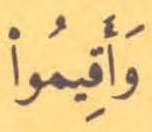 وَأَقِيمُواْ